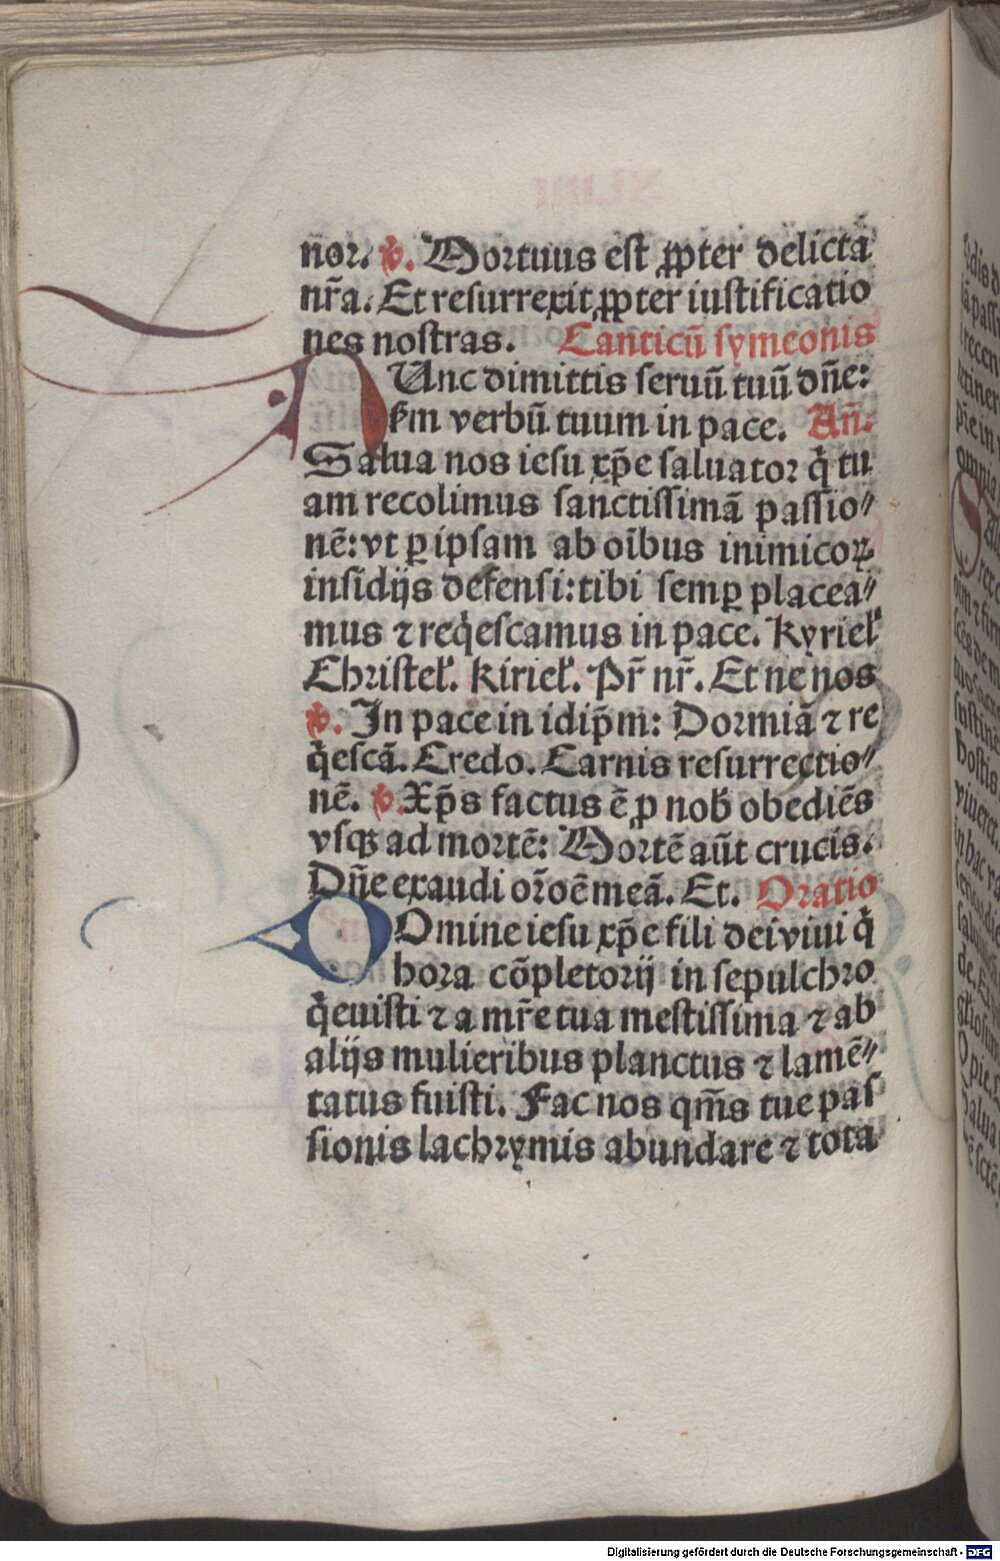 nõr. ℣. Mortuus est ꝓpter delicta
nr̄a. Et resurrexit ꝓpter iustificatio
nes nostras. Canticū symeonis
NUnc dimittis seruū tuū dn̄e:
ẜm verbū tuum in pace. An̄.
Salua nos iesu xp̄e saluator q̇ tu
am recolimus sanctissimā passio⸗
nē: vt ꝑ ipsam ab oībus inimicoꝝ
insidijs defensi: tibi semꝑ placea⸗
mus ⁊ req̇escamus in pace. Kyriel̓
Christel̓. Kiriel̓. Pr̄ nr̄. Et ne nos
℣. In pace in idip̄m: Dormiā ⁊ re
q̇escā. Credo. Carnis resurrectio⸗
nē. ℣. Xp̄s factus ē ꝓ nob̓ obediēs
vsqꝫ ad mortē: Mortē aūt crucis.
Dn̄e exaudi or̄oē meā. Et. Oratio
DOmine iesu xp̄e fili dei viui q̇
hora cōpletorij in sepulchro
q̇euisti ⁊ a mr̄e tua mestissima ⁊ ab
alijs mulieribus planctus ⁊ lamē⸗
tatus fuisti. Fac nos qm̄s tue pas
sionis lachrymis abundare ⁊ tota
Digitalisierung gefördert durch die Deutsche Forschungsgemeinschaft - DFG